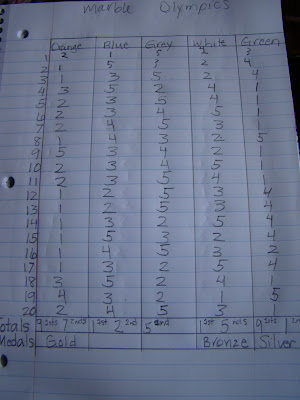 Marble Olympics
Orange Blue Grey White Green
1 2 1 5 3
2 1 5 3 2 4
3 1 3 5 2 4
4 3 5 2 4 1
5 2 3 5 4 1
6 2 3 4 5 1
7 2 4 5 3 1
8 1 4 3 2 5
9 5 3 4 2 1
10 2 3 4 5 1
11 2 3 5 4 1
12 1 2 5 3 4
13 1 2 5 3 4
14 1 3 2 5 4
15 1 5 3 2 4
16 1 4 5 3 2
17 1 3 2 5 4
18 3 5 2 4 1
19 4 3 2 1 5
20 2 4 5 3 1
Totals 9 1sts 7 2nds 1 1st 2 2nd 5 2nd 1 1st 5 2nds 9 1sts 1
Medals Gold Bronze Silver